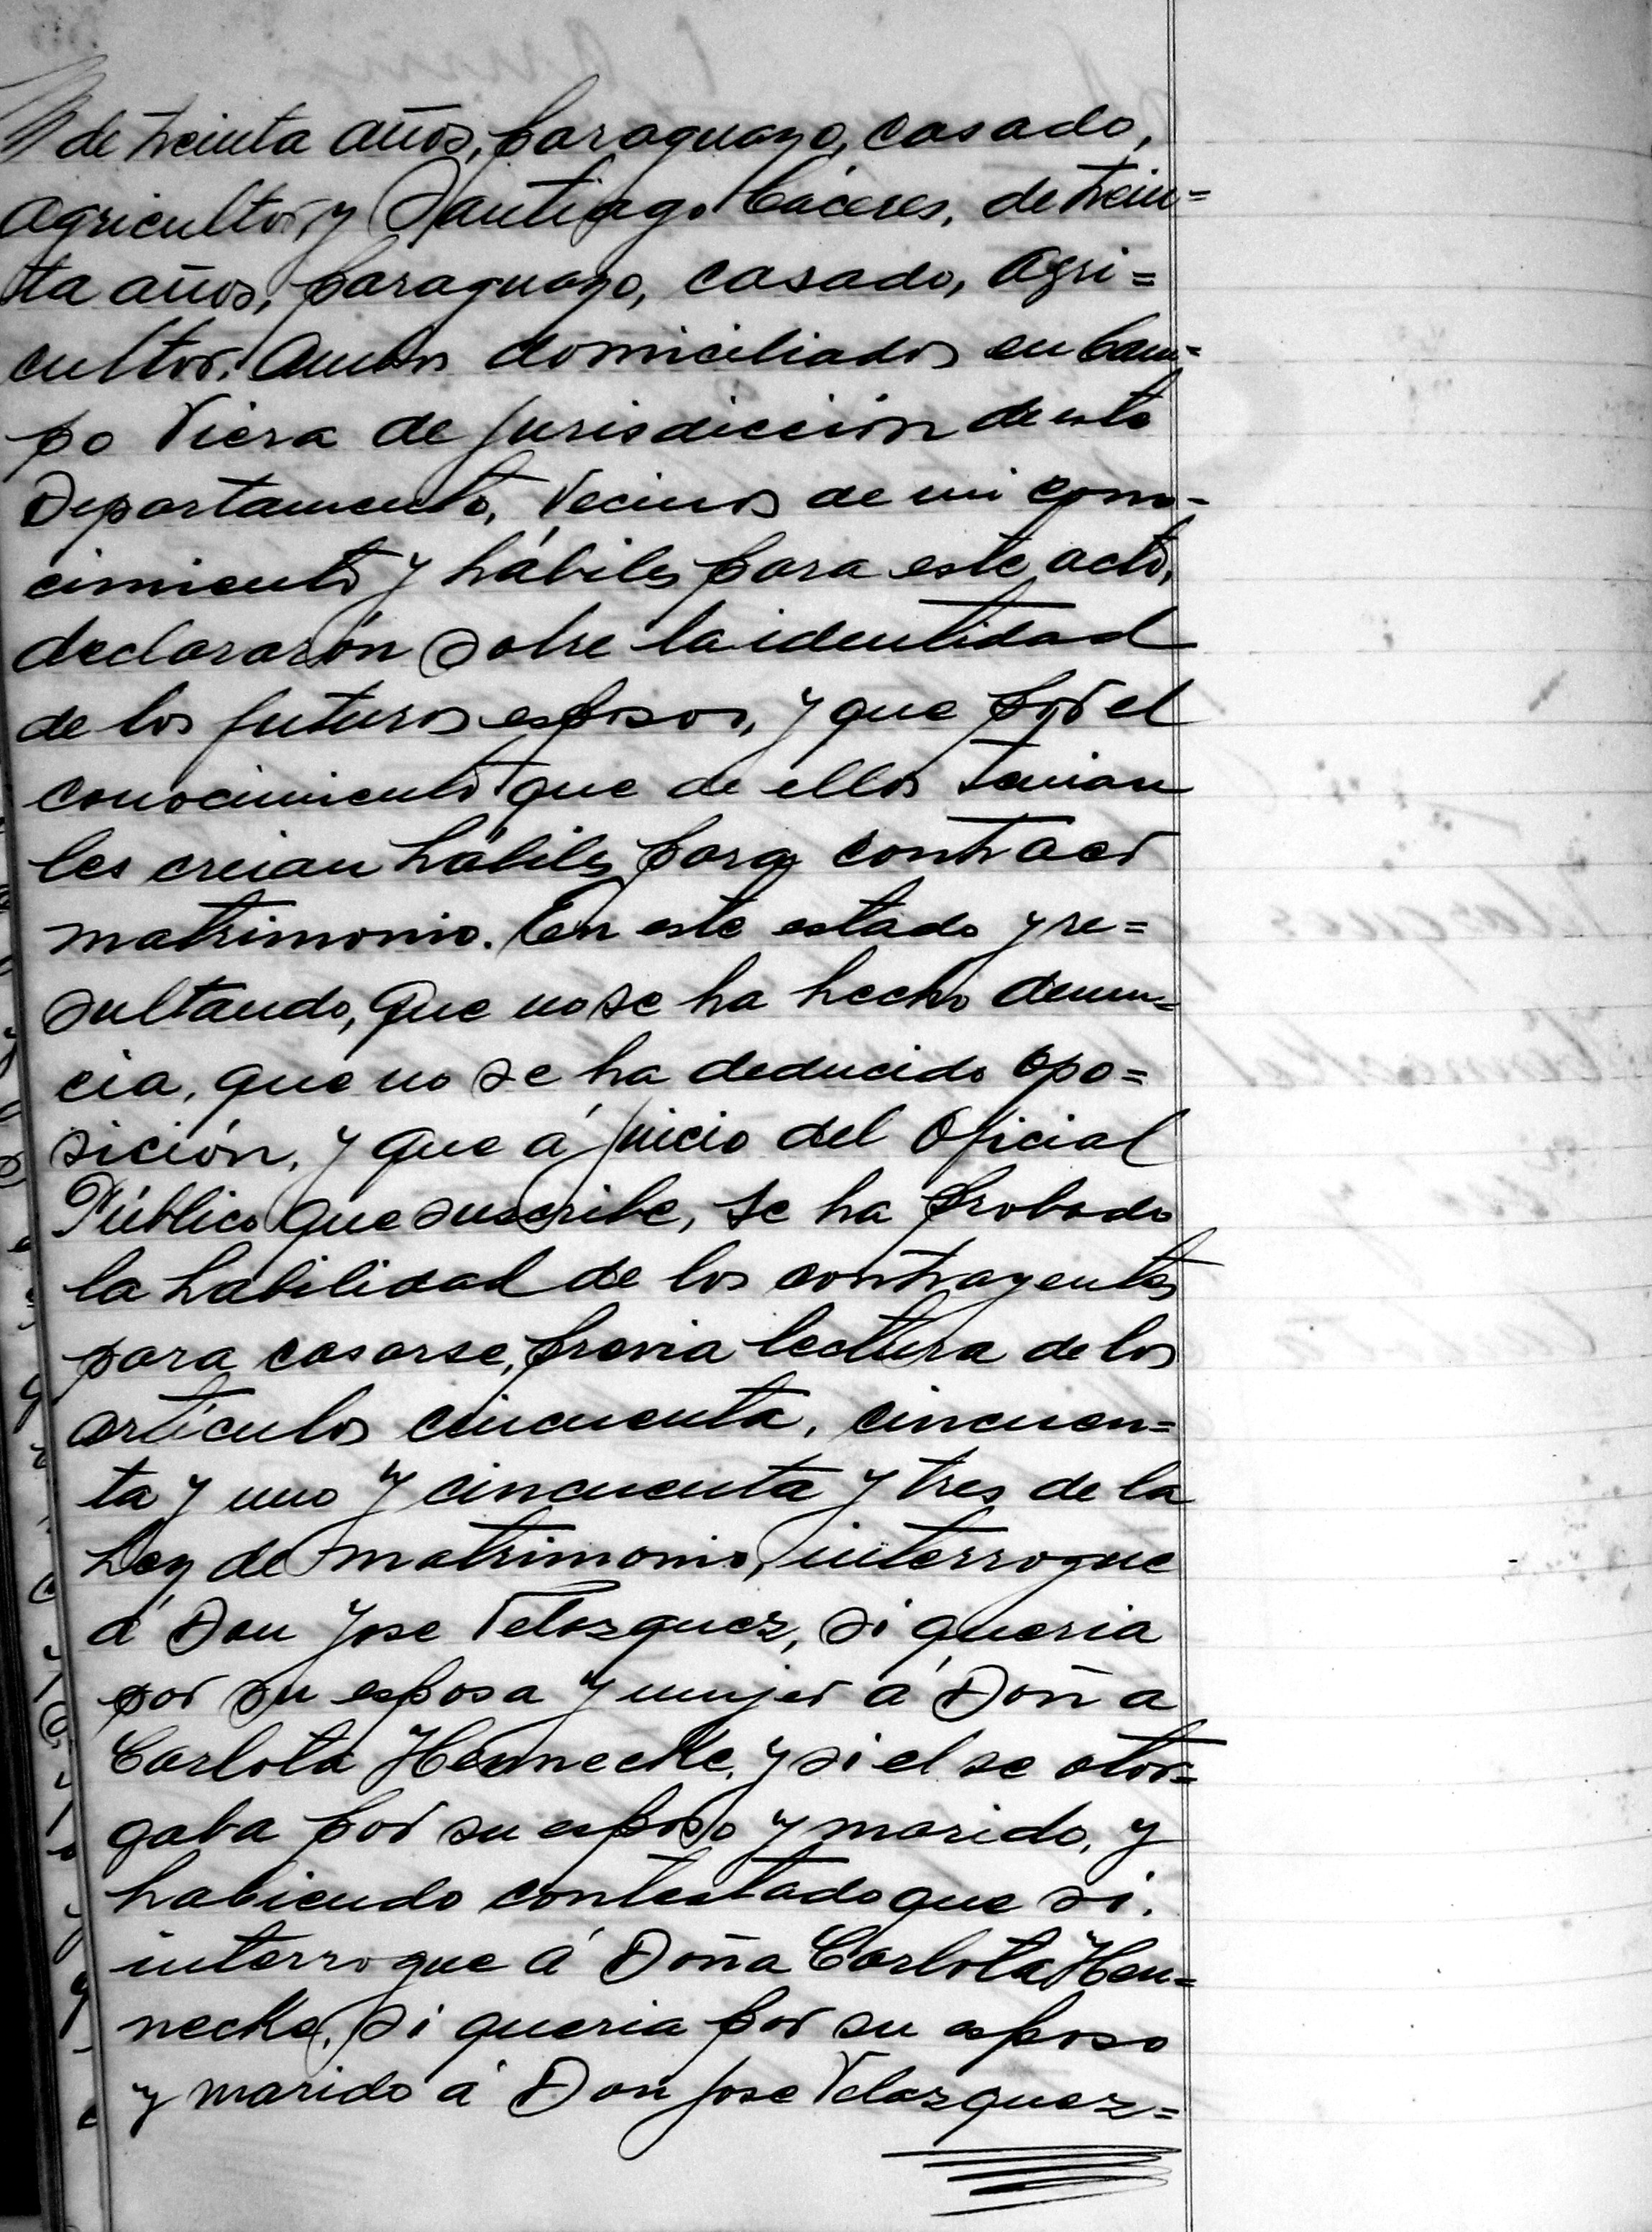 de treinta años, paraguayo, casado,
agricultor y Santiago Cáceres, de trein=
ta años, paraguayo, casado, agri=
cultor. Ambos domiciliados en Cam=
po Viera de jurisdicción de este
Departamento, vecinos de mi cono-
cimiento y hábiles para este acto,
declararón sobre la identidad
de los futuros esposos, y que por el
conocimiento que de ellos tenian
les creian hábiles para contraer
matrimonio. En este estado y re=
sultando, que no se ha hecho denun=
cia, que no se ha deducido opo=
sición, y que á juicio del Oficial
Público que suscribe, se ha probado
la habilidad de los contrayentes
para casarse, previa lectura de los
artículos cincuenta, cincuen=
ta y uno y cincuenta y tres de la
Ley de matrimonio, interrogue
á Don Jose Velazquez, si queria
por su esposa y mujer á Doña
Carlota Hennecke, y si el se otor=
gaba por su esposo y marido, y
habiendo contestado que si.
interrogue á Doña Carlota Hen=
necke, si queria por su esposo
y marido á Don Jose Velazquez=